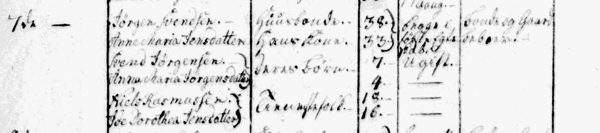 7de — Jörgen Svendsen. Huusbonde. 38. begge i bonde og Gaard
Anne Maria Jensdatter Hans Kone. 33. beboer.
Svend Jörgensen. deres börn. 7. Ugift.
Anna Maria Jörgensdatter 4.
Niels Rasmussen. Tienestefolk. 18.
Dorothea Jensdatter 16.